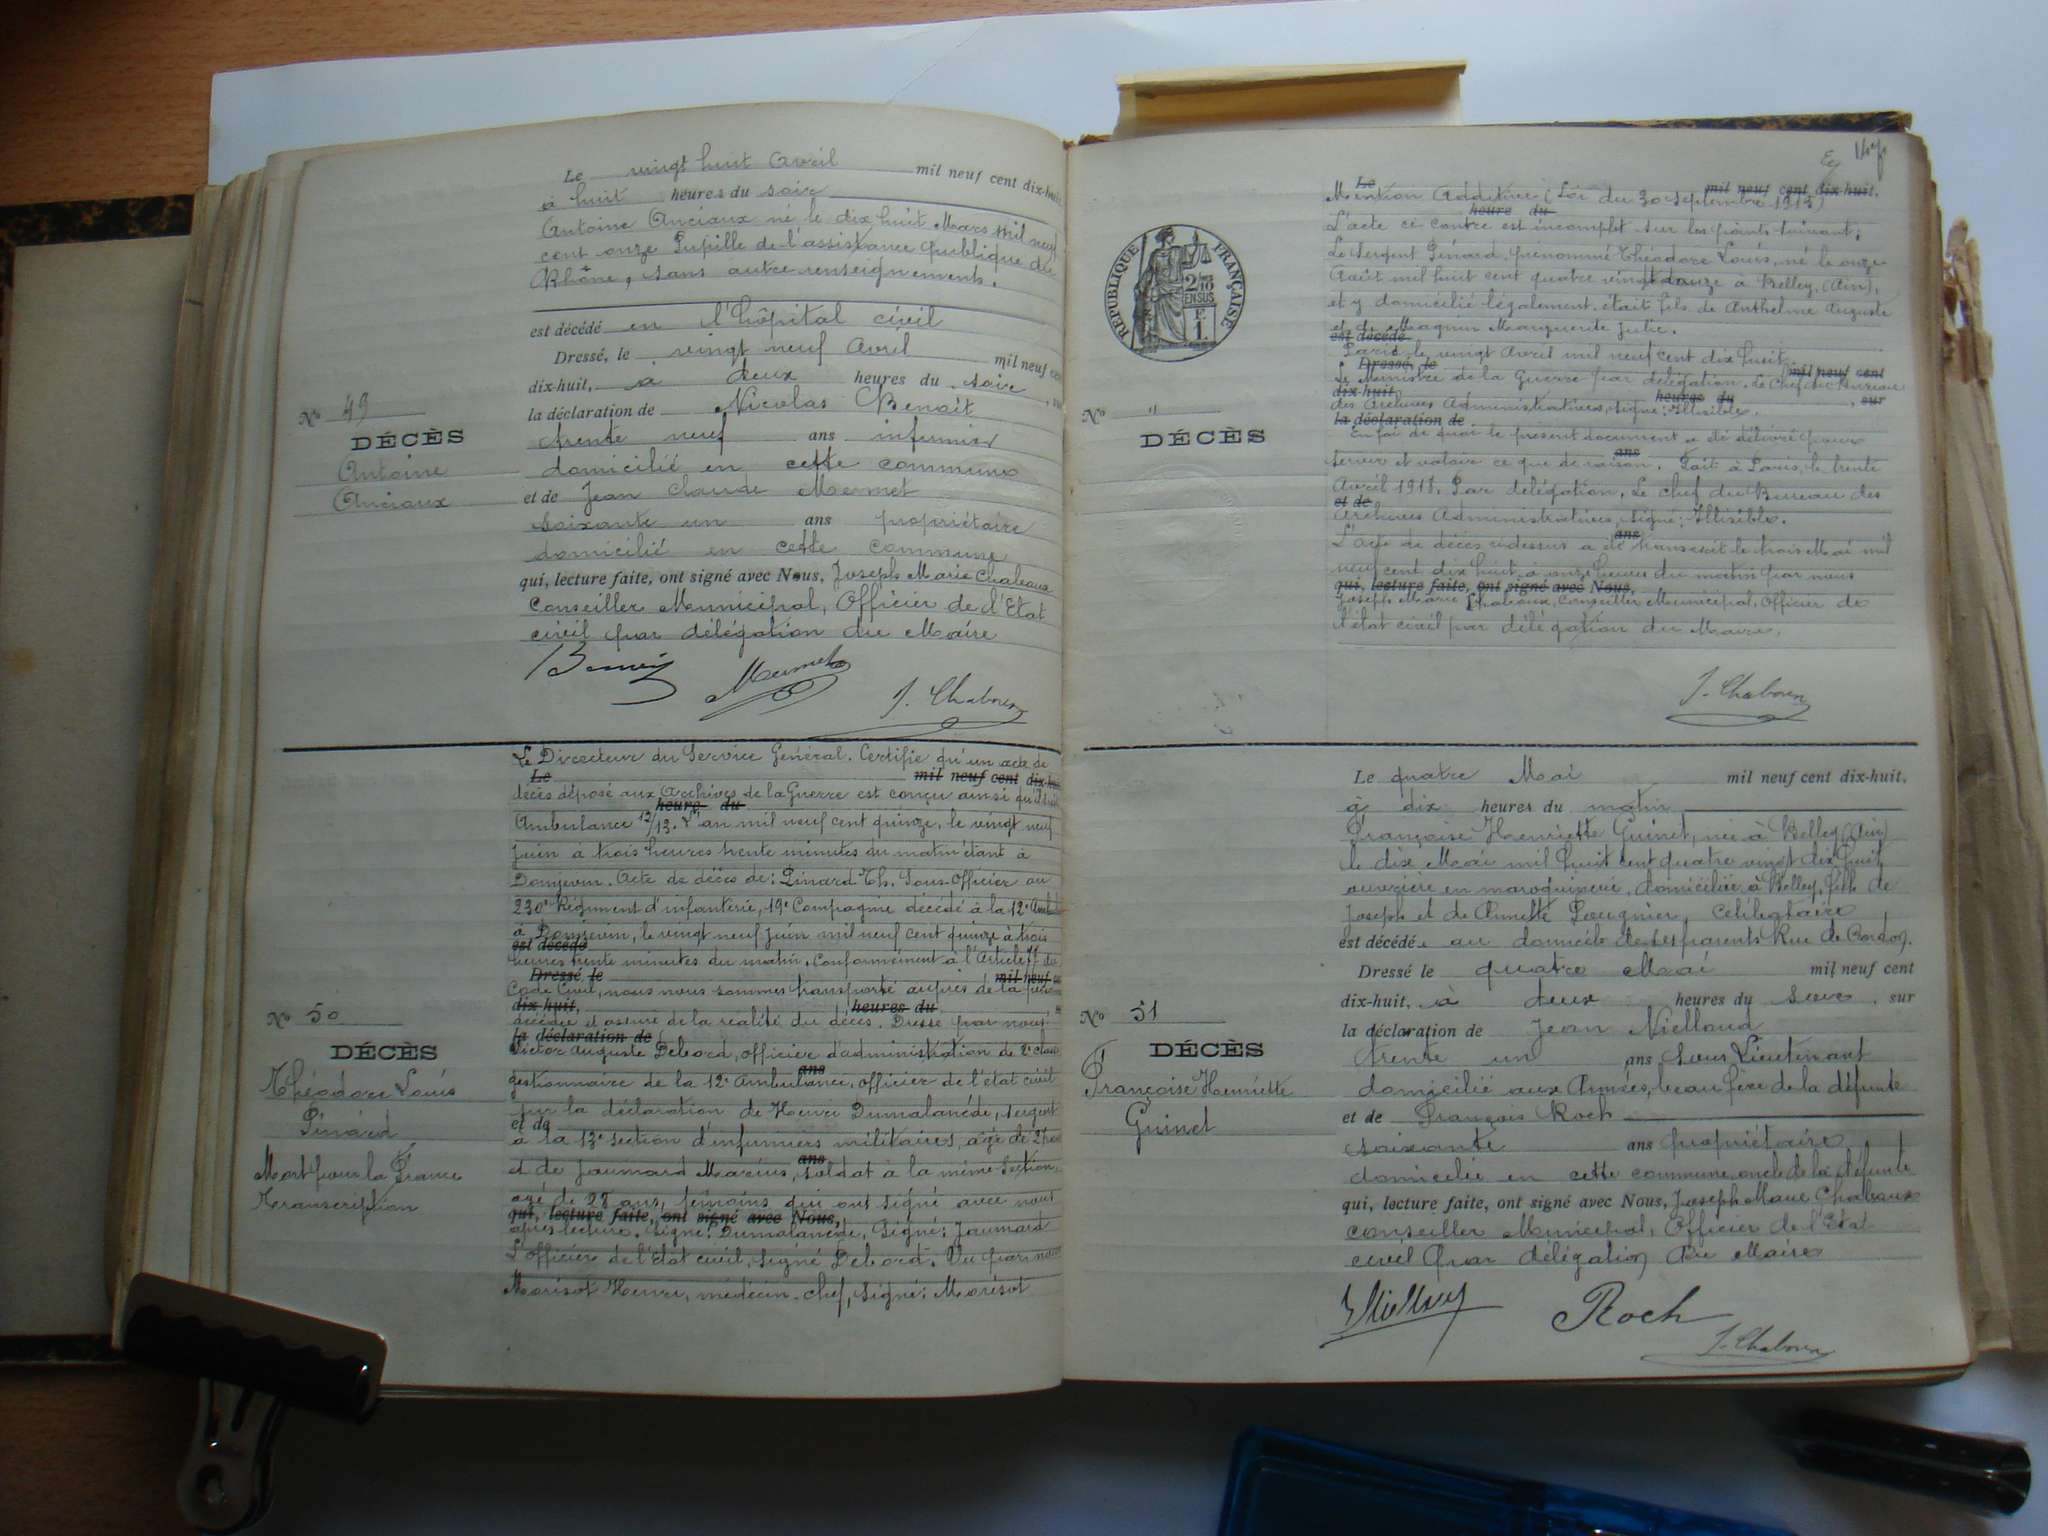 Le vingt huit Avril mil neuf cent dix-huit
à huit heures du soir
Antoine Anciaux né le dix huit Mars mil neuf
cent onze Pupille de l'assistance publique du
Rhône, sans autre renseignements.
est décédé en l'hôpital civil
Dressé, le vingt neuf Avril mil neuf cent
dix-huit, à deux heures du soir, sur
la déclaration de Nicolas Benoît
trente neuf ans infirmier
domicilié en cette commune
et de Jean Claude Mermet
soixante un ans propriétaire
domicilié en cette commune
qui, lecture faite, ont signé avec Nous, Joseph Marie Chaboux
Conseiller Municipal, Officier de l'Etat
civil par délégation du Maire
Mermet
J. Chaboux
No 49
DÉCÈS
Antoine
Anciaux
Le Directeur du Service Général. Certifie qu'un acte de
Le mil neuf cent dix-huit
décès déposé aux Archives de la Guerre est conçu ainsi qu'il suit
heure du
Ambulance 12/13. L'an mil neuf cent quinze, le vingt neuf
Juin à trois heures trente minutes du matin étant à
Domjevin. Acte de décès de: Pinard Th. Sous-Officier au
230e Régiment d'infanterie, 19e Compagnie décédé à la 12e Ambul
à Domjevin, le vingt neuf Juin mil neuf cent quinze à trois
est décédé
heures trente minutes du matin. Conformément à l'Article 77 du
Dressé le mil neuf
Code Civil, nous nous sommes transporté auprès de la per
dix-huit, heures du
décédée et assuré de la réalité du décès. Dressé par nous
la déclaration de
Victor Auguste Debord, officier d'administration de 2e classe
ans
gestionnaire de la 12e Ambulance, officier de l'état civil
sur la déclaration de Henri Dumalanède, sergent
et de
à la 13e section d'infirmiers militaires, âgé de
ans
et de Jaumard Marius, soldat à la même Section,
âgé de 28 ans, témoins qui ont signé avec nous
qui, lecture faite, ont signé avec Nous,
après lecture. Signé: Dumalanède, Signé: Jaumard
L'officier de l'état civil, signé Debord. Vu par nous
Morisot Henri, médecin-chef, signé: Morisot
No 50
DÉCÈS
Théodore Louis
Pinard
Mort pour la France
Transcription
RÉPUBLIQUE FRANÇAISE
2/10
EN SUS
F.
1.
Le mil neuf cent dix-huit.
Mention Additive (Loi du 30 septembre 1915)
heure du
L'acte ci contre est incomplet sur les points suivant:
Le Sergent Pinard, prénommé Théodore Louis, né le onze
Août mil huit cent quatre vingt douze à Belley, (Ain),
et y domicilié légalement. était fils de Anthelme Auguste
et de Magnin Marguerite Julie.
est décédé
Paris, le vingt Avril mil neuf cent dix huit
Dressé, le mil neuf cent
Le Ministre de la Guerre par délégation. Le Chef du Bureau
dix-huit, heures du, sur
des Archives Administratives, signé: Illisible.
la déclaration de
En foi de quoi le présent document a été délivré pour
ans
servir et valoir ce que de raison. Fait à Paris, le trente
Avril 1918, Par délégation, Le chef du Bureau des
et de
Archives Administratives, signé: Illisible.
ans
L'acte de décès ci dessus a été transcrit le trois Mai mil
neuf cent dix huit à onze heures du matin par nous
qui, lecture faite, ont signé avec Nous,
Joseph Marie Chaboux, Conseiller Municipal, Officier de
l'état civil par délégation du Maire.
J. Chaboux
No "
DÉCÈS
Le quatre Mai mil neuf cent dix-huit.
à dix heures du matin
Françoise Henriette Guinet, née à Belley (Ain)
le dix Mai mil huit cent quatre vingt dix huit,
ouvrière en maroquinerie, domiciliée à Belley, fille de
Joseph et de Annette Pougnier, célibataire
est décédée au domicile de ses parents Rue de Bordon.
Dressé le quatre Mai mil neuf cent
dix-huit, à deux heures du soir, sur
la déclaration de Jean Niellaud
trente un ans Sous Lieutenant
domicilié aux Armées, beau frère de la défunte
et de François Roch
soixante ans propriétaire
domicilié en cette commune, oncle de la défunte
qui, lecture faite, ont signé avec Nous, Joseph Marie Chaboux
conseiller Municipal, Officier de l'Etat
civil par délégation du Maire
Roch
J. Chaboux
No 51
DÉCÈS
Françoise Henriette
Guinet